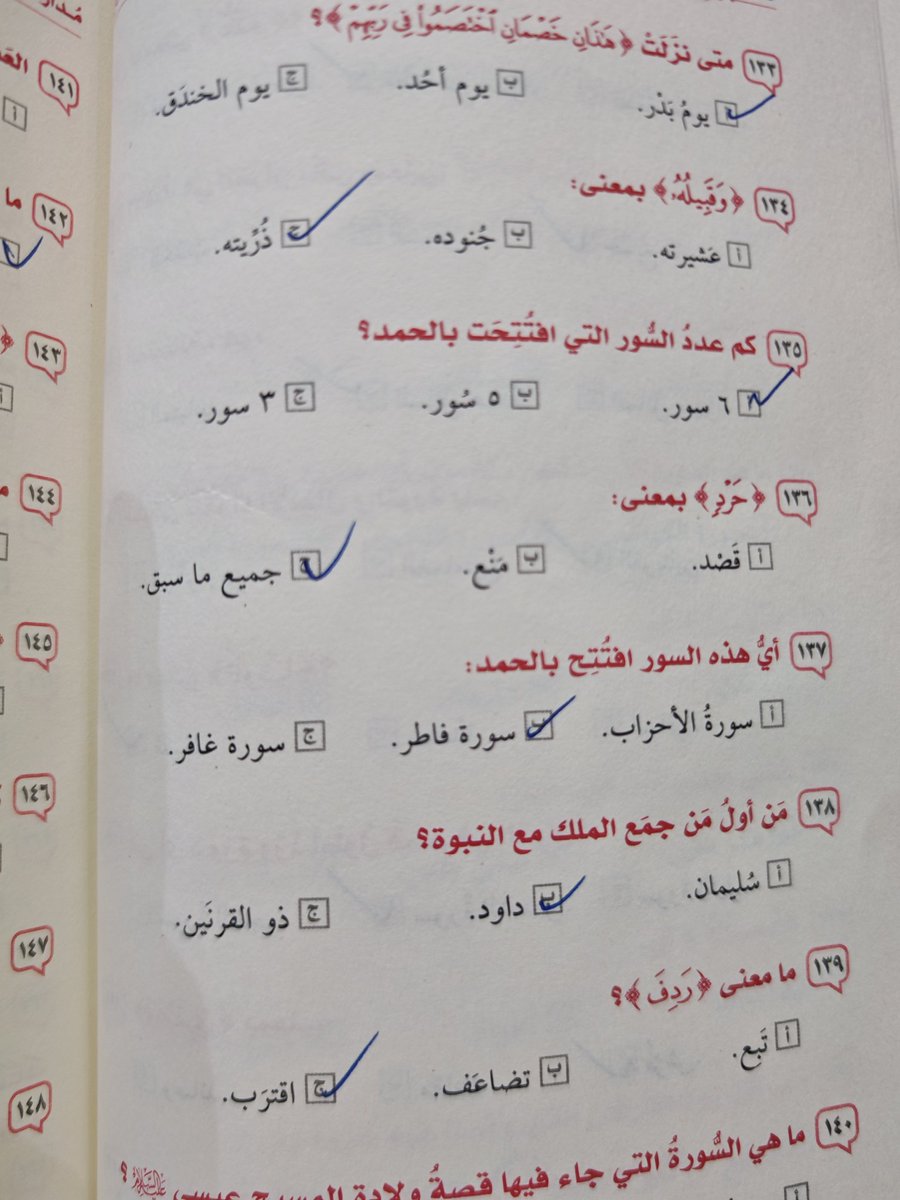 ١٣٣ متى نزَلَتْ ﴿هَٰذَانِ خَصْمَانِ ٱخْتَصَمُوا۟ فِى رَبِّهِمْ﴾؟
أ يومُ بَدْر. ب يوم أحُد. ج يوم الخندَق.
١٣٤ ﴿وَقَبِيلُهُۥ﴾ بمعنى:
أ عَشيرته. ب جُنوده. ج ذُرِّيته.
١٣٥ كم عددُ السُّور التي افتُتِحَت بالحمد؟
أ ٦ سور. ب ٥ سُور. ج ٣ سور.
١٣٦ ﴿حَرْدٍ﴾ بمعنى:
أ قَصْد. ب مَنْع. ج جميع ما سبق.
١٣٧ أيُّ هذه السور افتُتِح بالحمد:
أ سورةُ الأحزاب. ب سورة فاطر. ج سورة غافر.
١٣٨ مَن أولُ مَن جمَع الملك مع النبوة؟
أ سُليمان. ب داود. ج ذو القرنَين.
١٣٩ ما معنى ﴿رَدِفَ﴾؟
أ تَبع. ب تضاعَف. ج اقترَب.
١٤٠ ما هي السُّورةُ التي جاء فيها قصةُ ولادة المسيح عيسى عليه السلام؟
أ
١٤١
أ
١٤٢ ما
١٤٣
أ
١٤٤
١٤٥
١٤٦
١٤٧
١٤٨